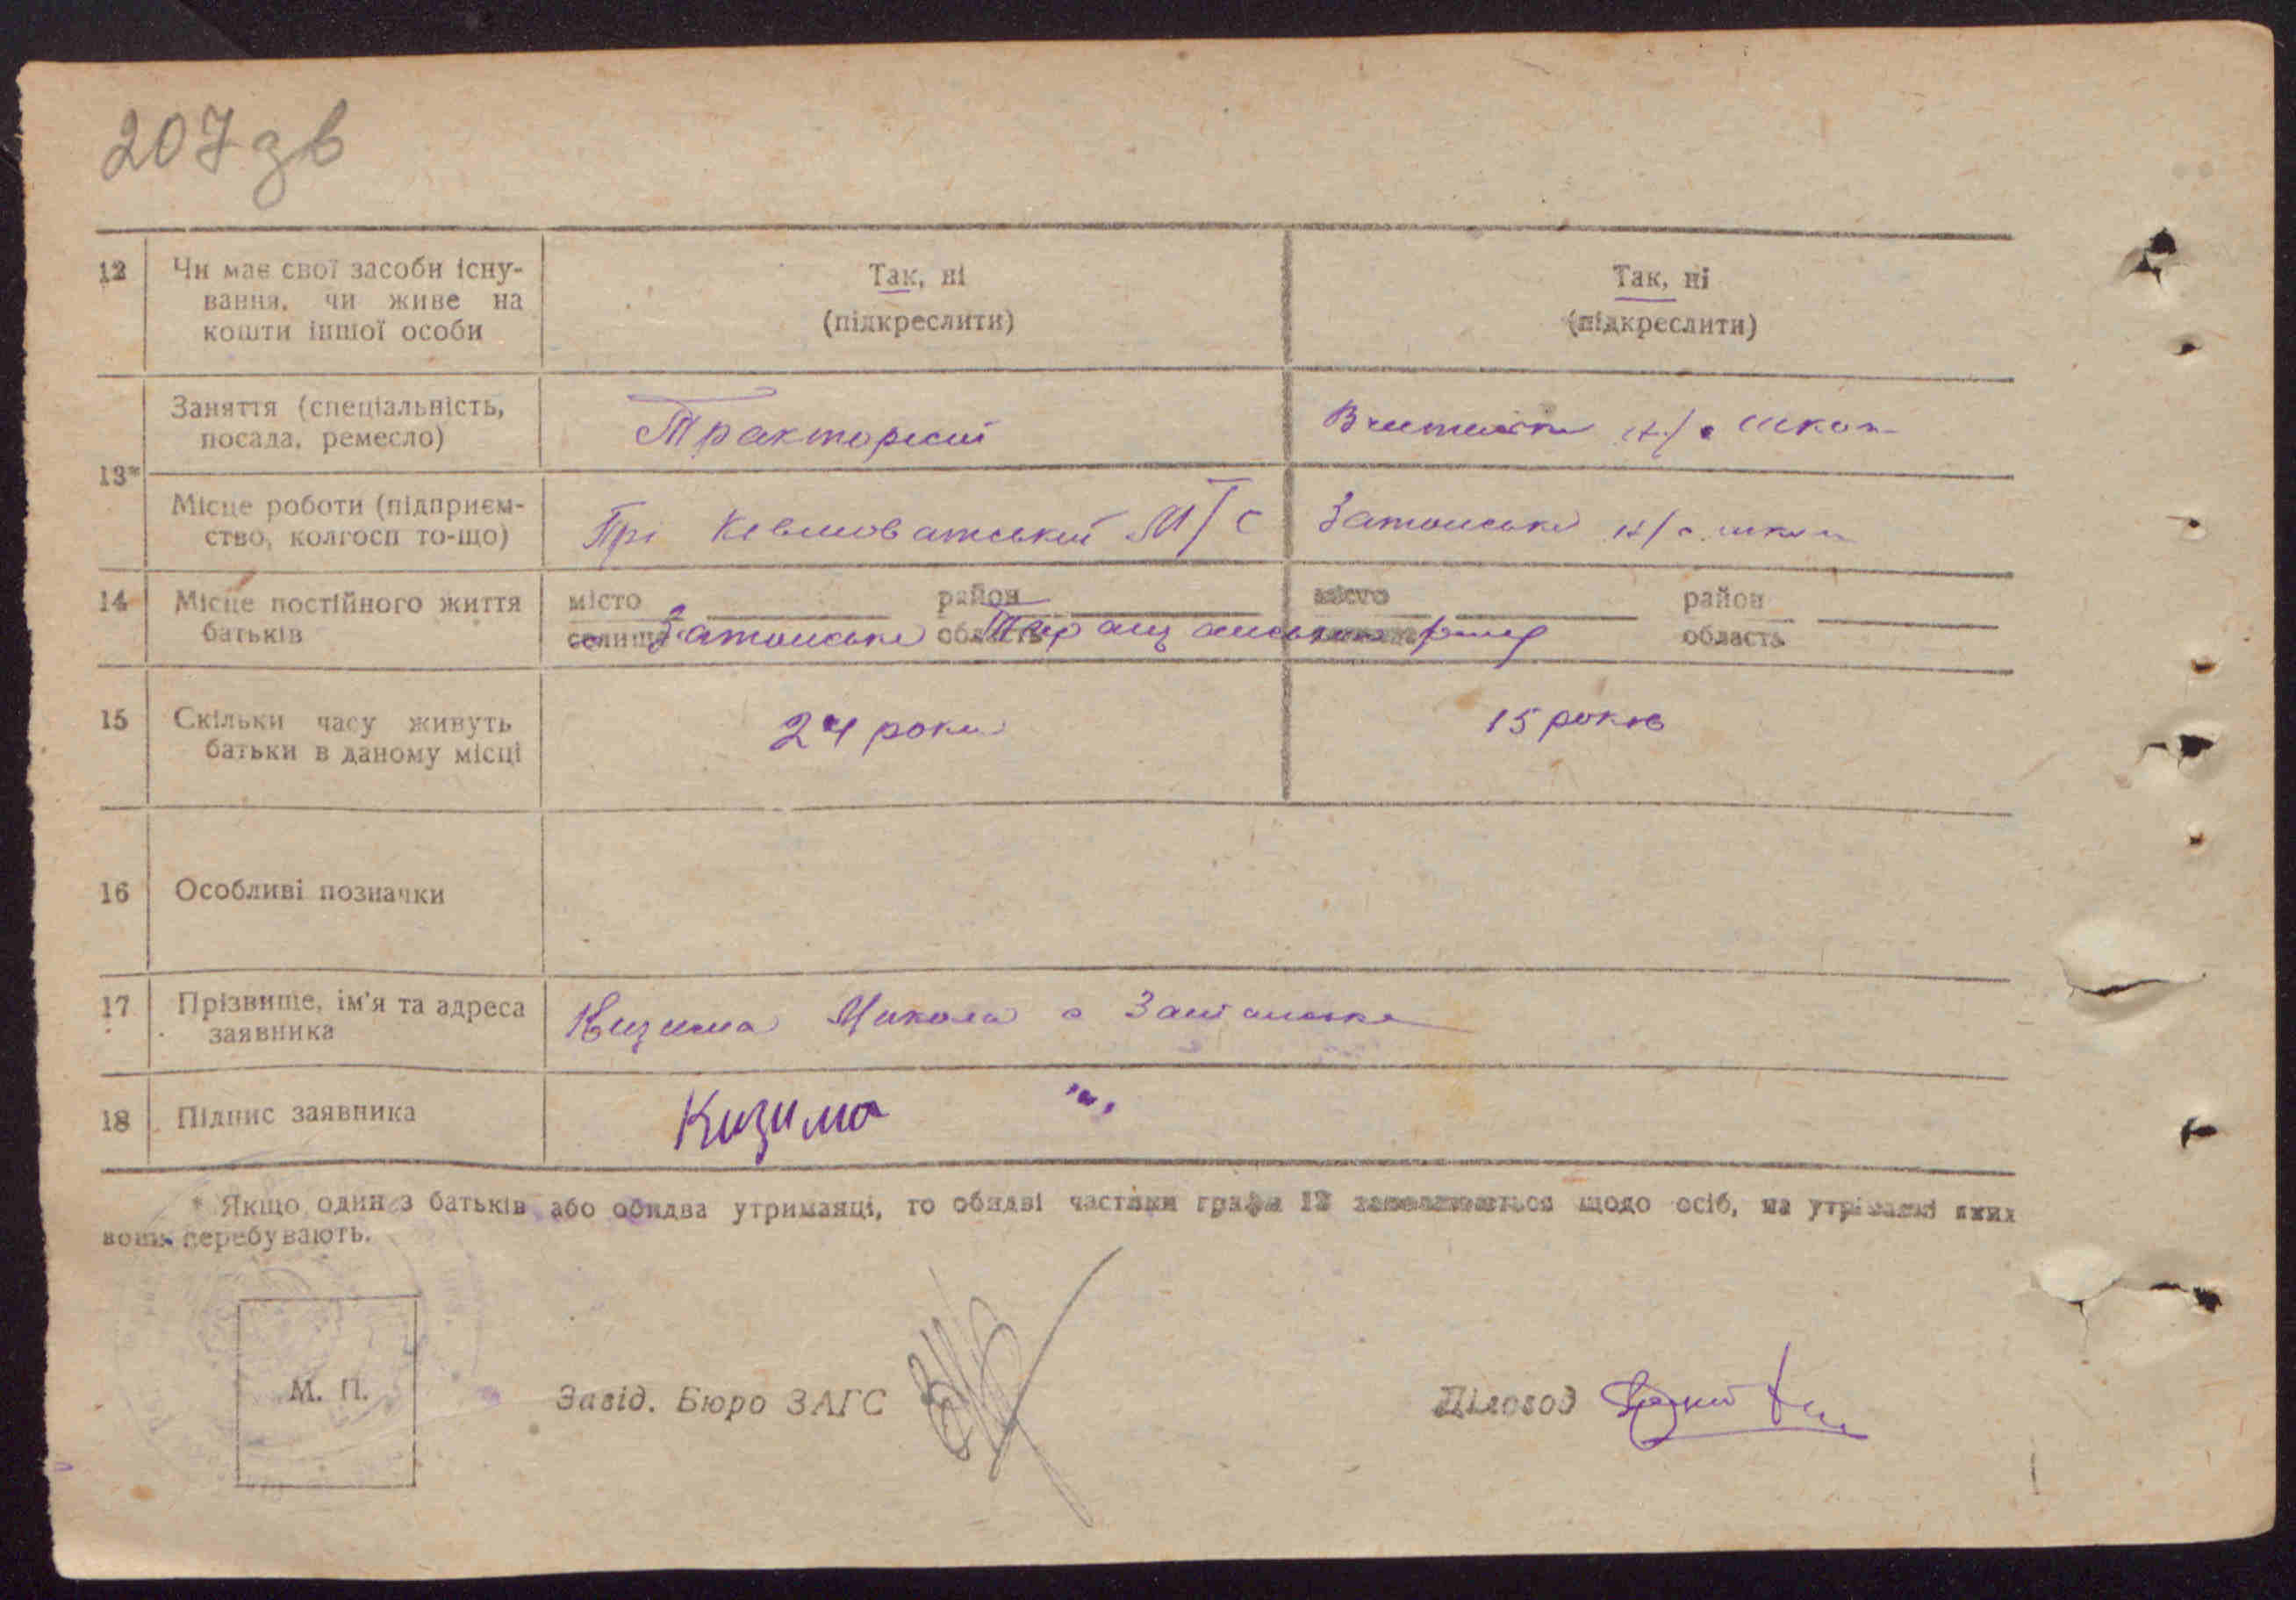 207 зв
12 Чи має свої засоби існу-
вання, чи живе на
кошти іншої особи
Так, ні
(підкреслити)
Так, ні
(підкреслити)
13*
Заняття (спеціальність,
посада, ремесло)
Тракторист
Вчителька н/с школ
Місце роботи (підприєм-
ство, колгосп то-що)
Прі МТС
Затонська н/с школ
14 Місце постійного життя
батьків
місто район
селище область
місто район
область
Затонське район
15 Скільки часу живуть
батьки в даному місці
24 роки
15 років
16 Особливі позначки
17 Прізвище, ім'я та адреса
заявника
Кизима Микола с Затонське
18 Підпис заявника
Кизима
* Якщо один з батьків або обидва утриманці, то обидві частини графи 12 заповнюються щодо осіб, на утриманні яких
вони перебувають.
М. П.
Завід. Бюро ЗАГС
Діловод